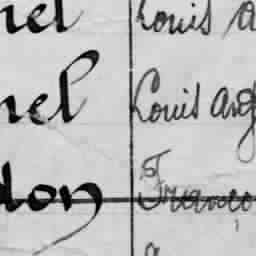 nel Louis A
nel Louis Aug
don Franço